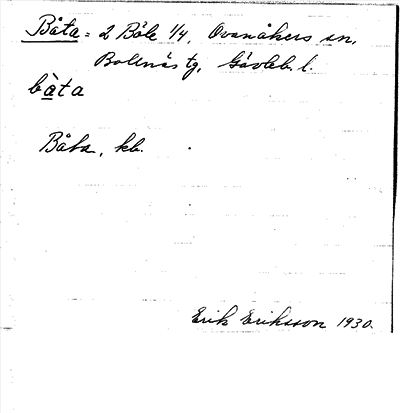 Båta = 2 Böle 1/4, Ovanåkers sn,
Bollnäs tg, Gävleb. l.
bàta
Båta, kb.
Erik Eriksson 1930.